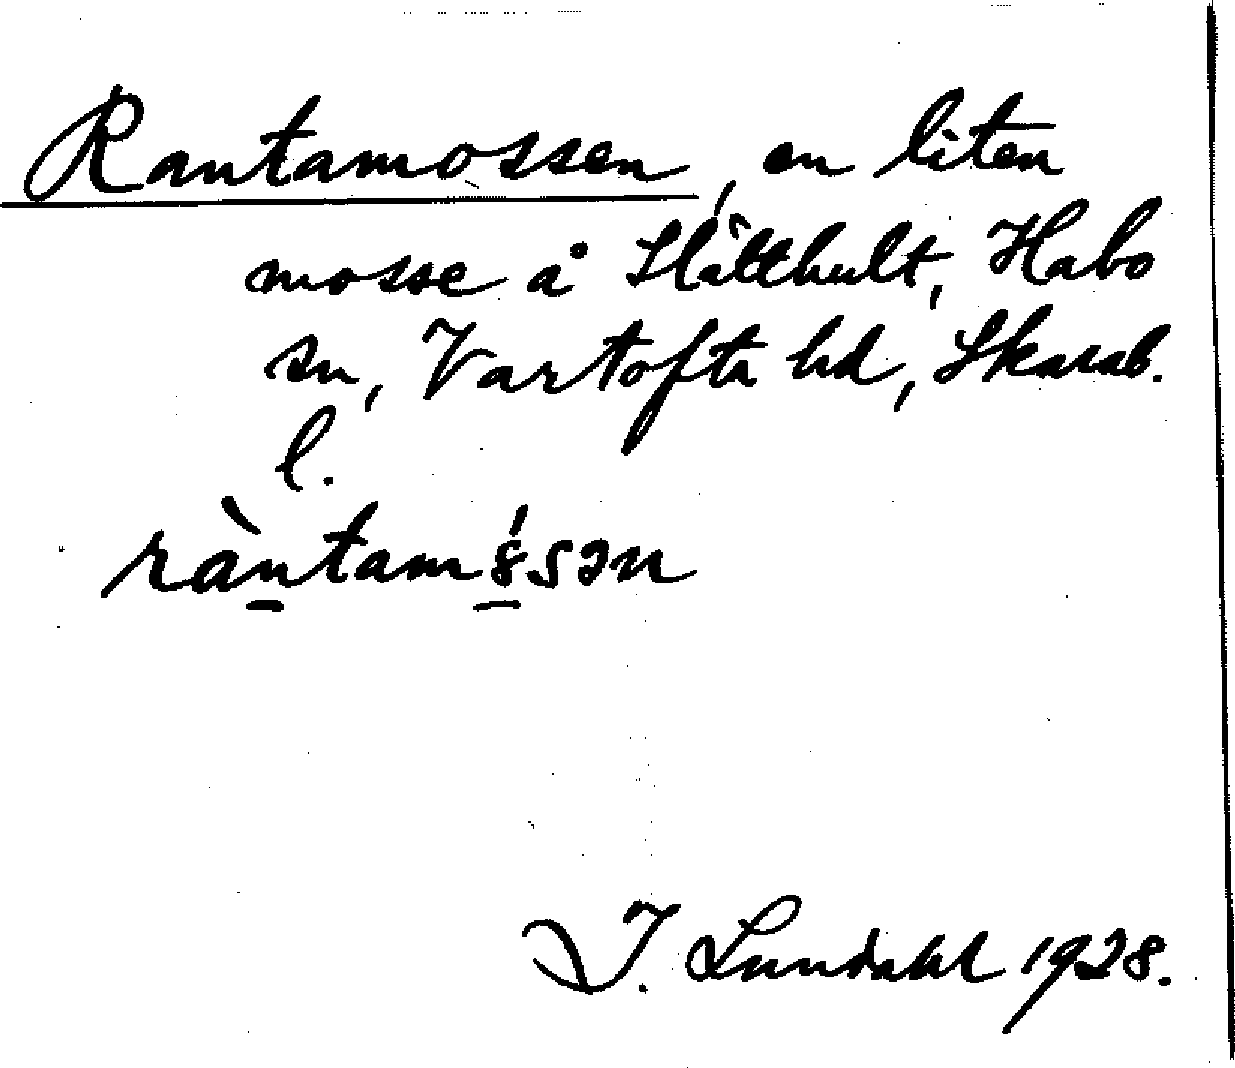 Rantamossen, en liten
mosse å Slätthult, Habo
sn, Vartofta hd, Skarab.
l.
ràntam8́sən
I. Lundahl 1928.